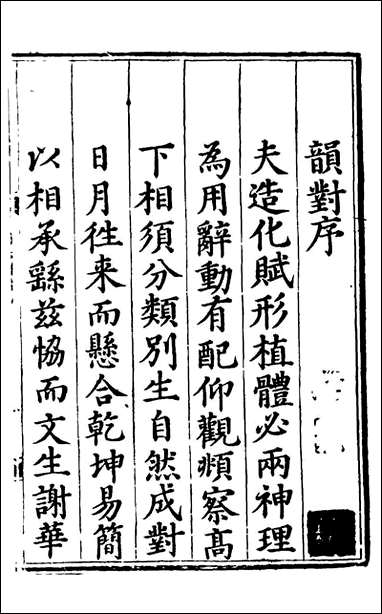 韻對序
夫造化賦形植體必兩神理
為用辭動有配仰觀頫察髙
下相須分類別生自然成對
日月徃来而懸合乾坤易簡
以相承繇茲恊而文生謝華